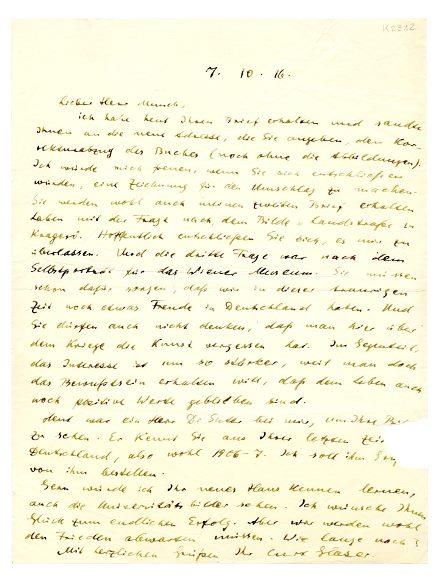 K 2312
7. 10. 16.
Lieber Herr Munch,
ich habe heut Ihren Brief erhalten und sandte
Ihnen an die neue Adresse, die Sie angeben, den Kor-
rekturabzug des Buches (noch ohne die Abbildungen).
Ich würde mich freuen, wenn Sie sich entschließen
würden, eine Zeichnung für den Umschlag zu machen.
Sie werden wohl auch meinen zweiten Brief erhalten
haben mit der Frage nach dem Bilde „Landstraße in
Kragerö". Hoffentlich entschließen Sie sich, es mir zu
überlassen. Und die dritte Frage war nach dem
Selbstporträt für das Wiener Museum. Sie müssen
schon dafür sorgen, daß wir in dieser traurigen
Zeit noch etwas Freude in Deutschland haben. Und
Sie dürfen auch nicht denken, daß man hier über
dem Kriege die Kunst vergessen hat. Im Gegenteil,
das Interesse ist um so stärker, weil man doch
das Bewußtsein erhalten will, daß dem Leben auch
noch positive Werte geblieben sind.
Heut war ein Herr bei mir, um Ihre
zu sehen. Er kennt Sie aus Ihrer letzten Zeit
Deutschland, also wohl 1906-7. Ich soll Ihnen
von ihm bestellen.
Gern würde ich Ihr neues Haus kennen lernen,
auch die Universitätsbilder sehen. Ich wünsche Ihnen
Glück zum endlichen Erfolg. Aber wir werden wohl
den Frieden abwarten müssen. Wie lange noch?
Mit herzlichen Grüßen Ihr Curt Glaser